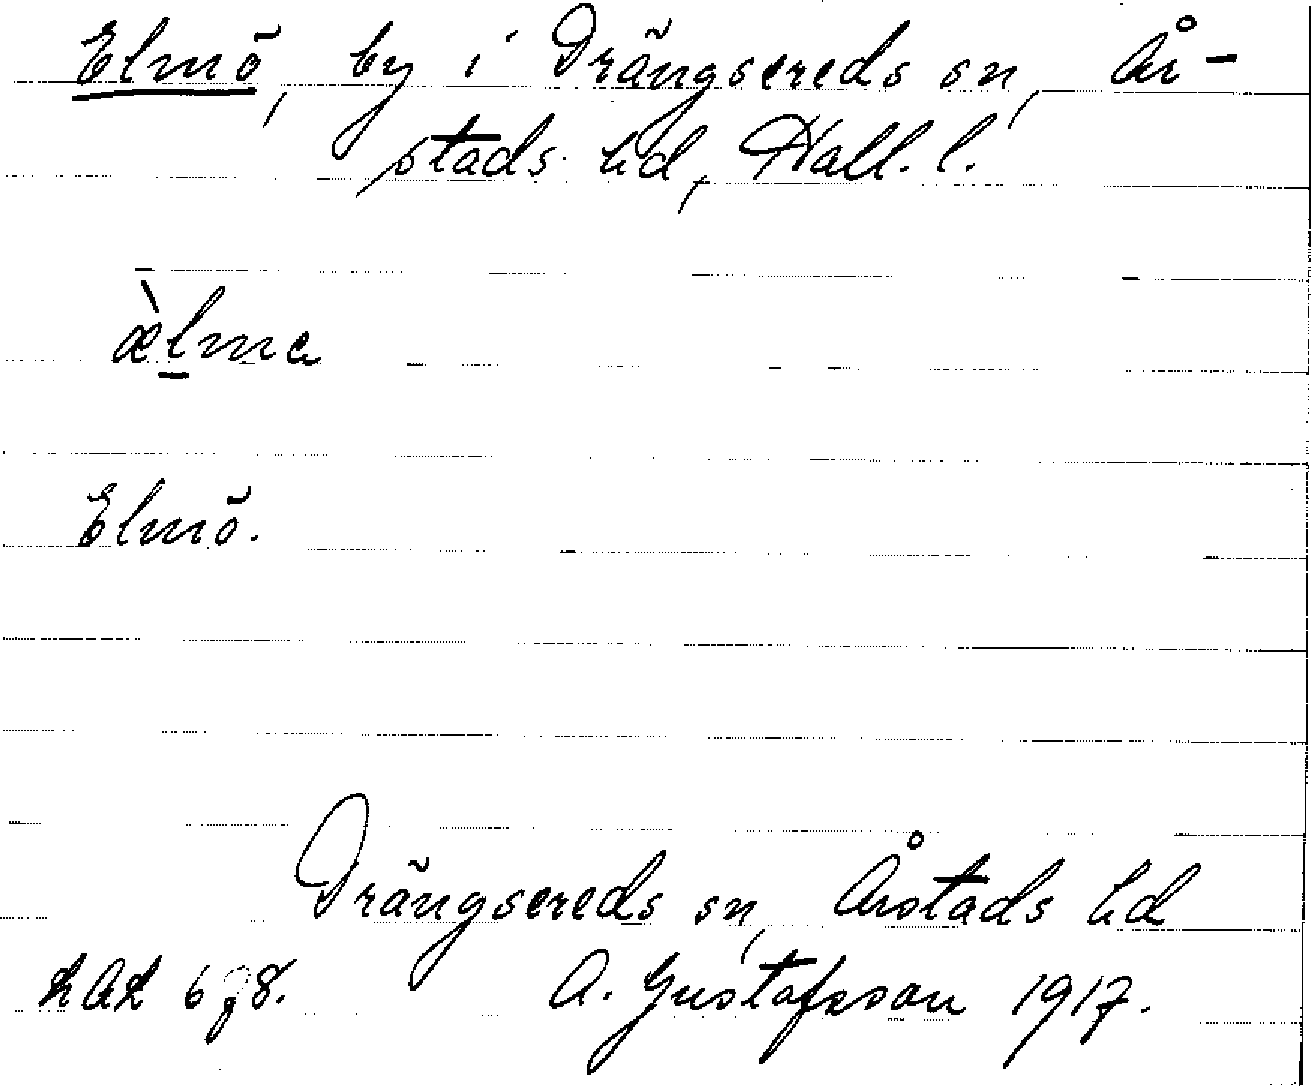 Elmö, by i Drängsereds sn, År-
stads hd, Hall. l.
æ̀lma
Elmö.
Drängsereds sn, Årstads hd
A. Gustafsson 1917.